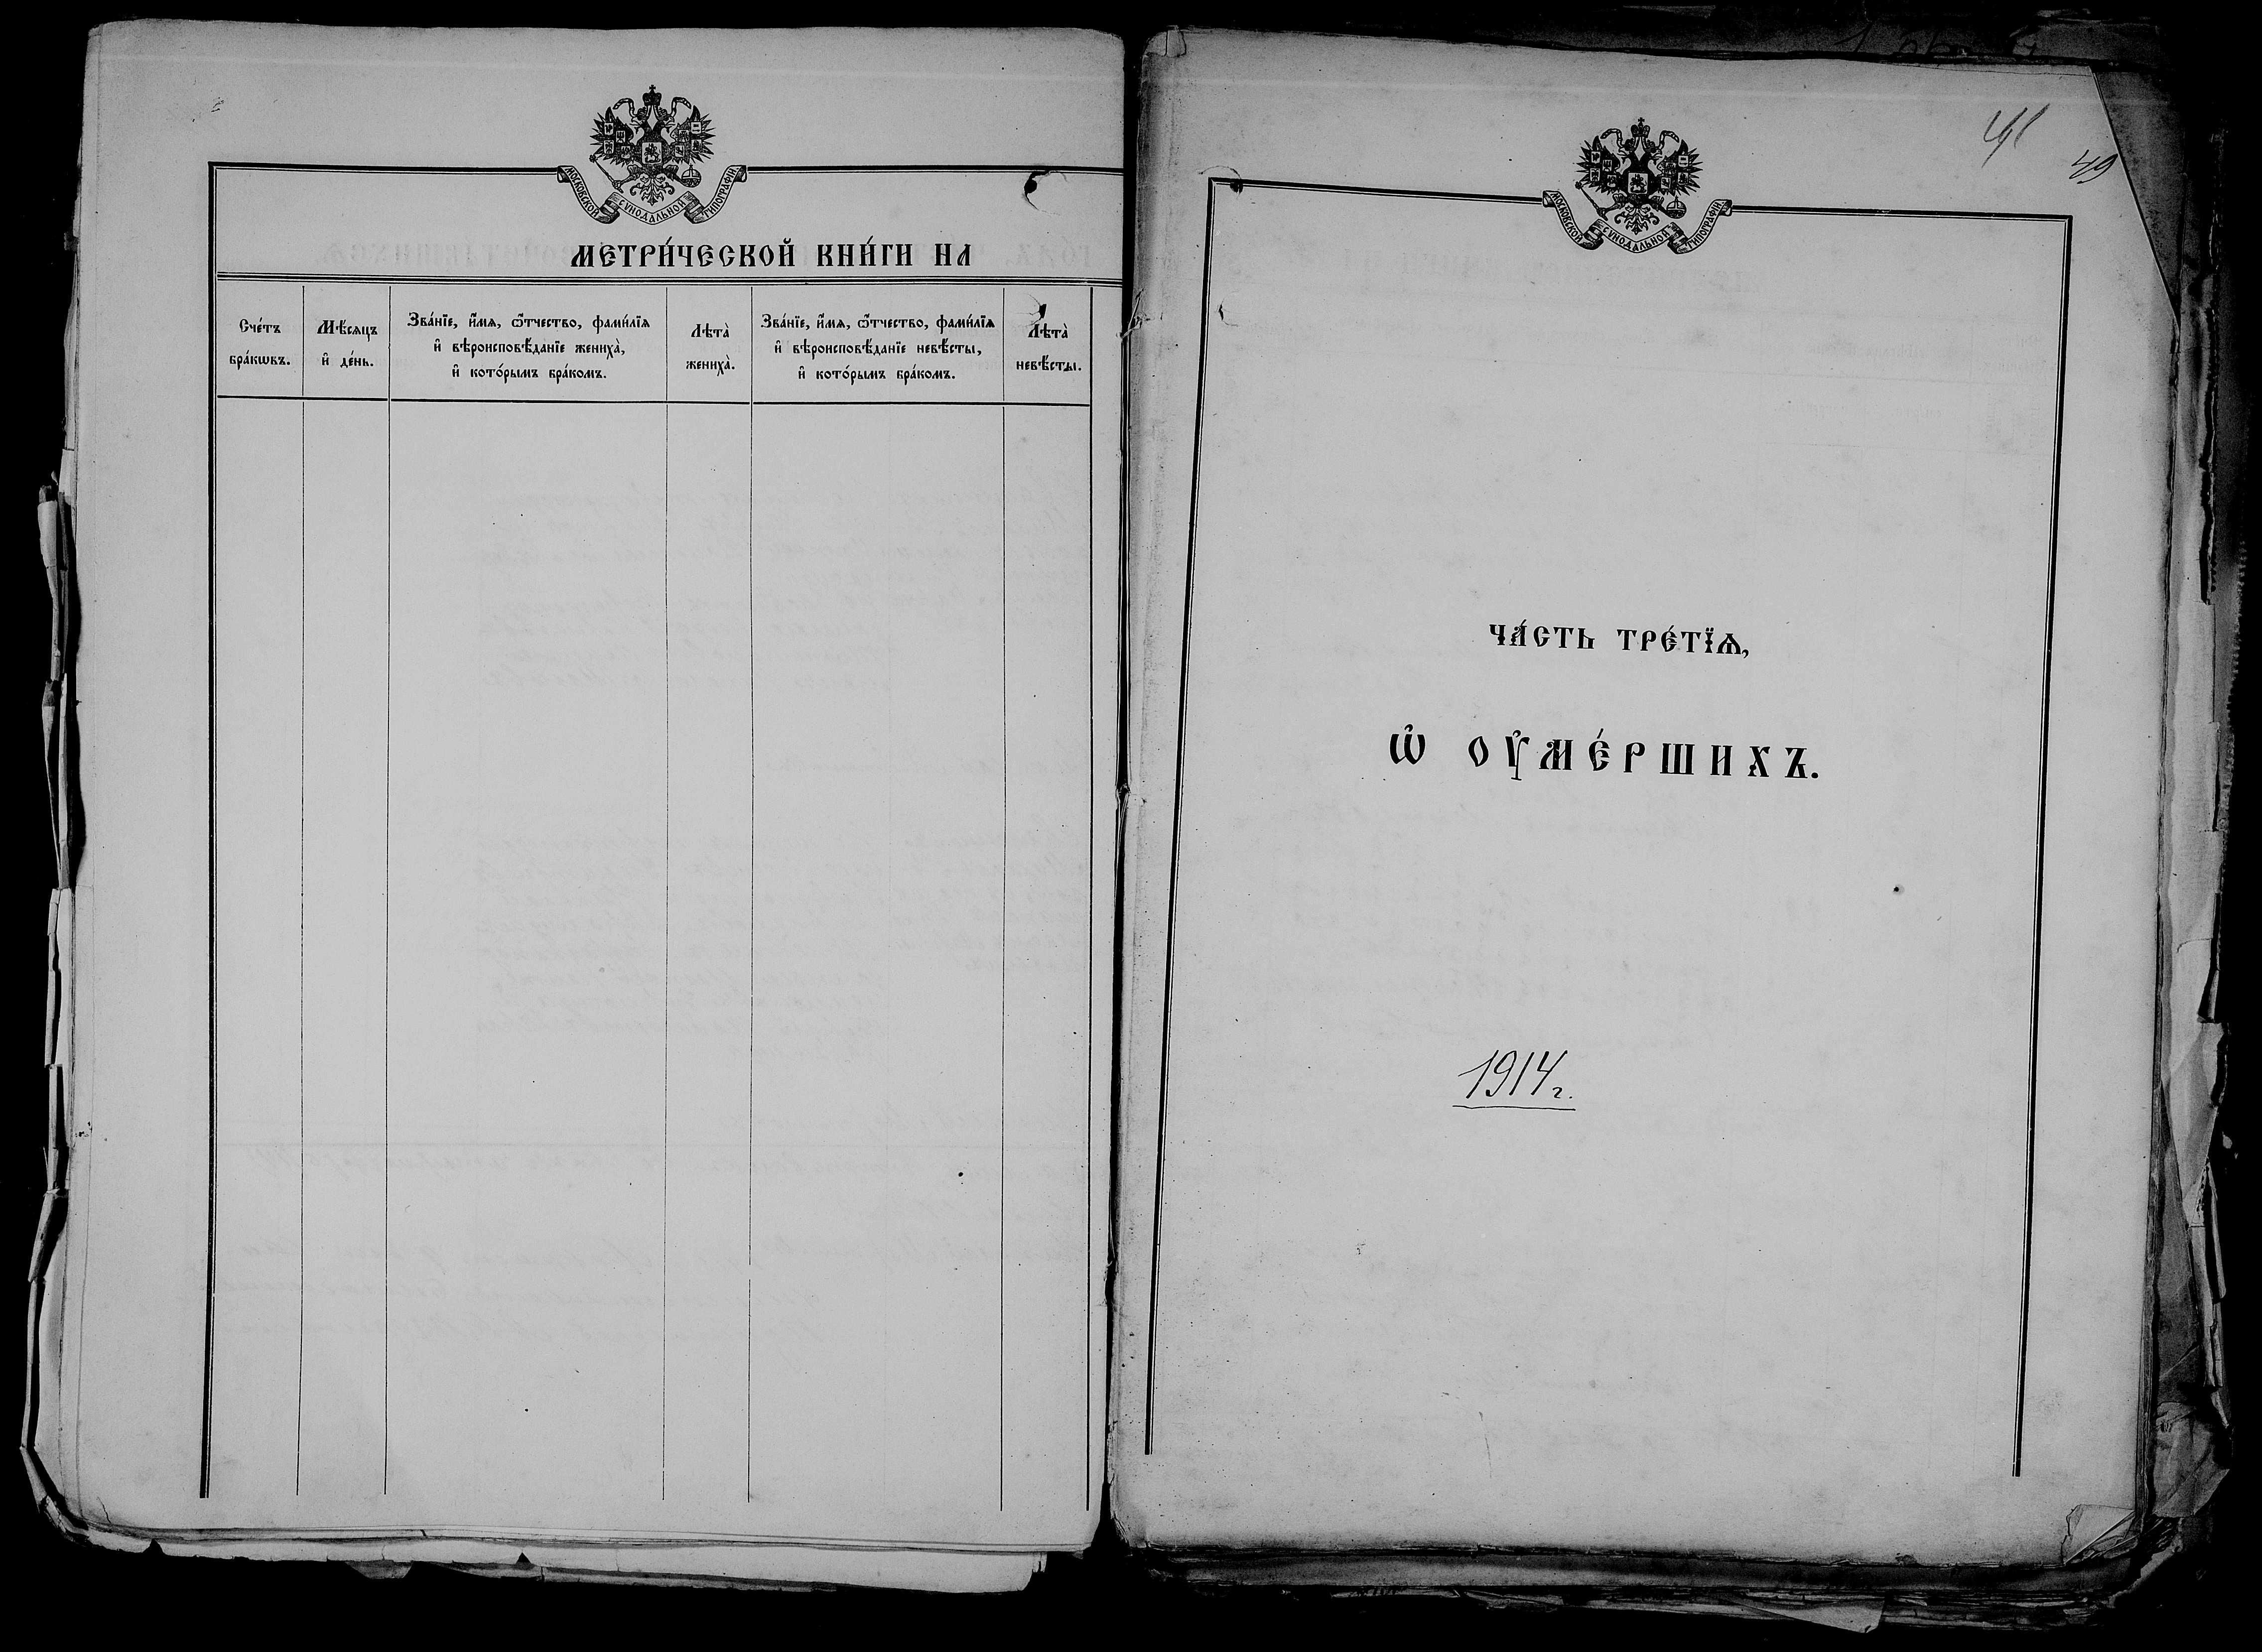 МОСКОВСКОЙ СѴНОДАЛЬНОЙ ТИПОГРАФІИ
МЕТРИ́ЧЕСКОЙ КНИ́ГИ НА
Сче́тъ
бра́кѡвъ.
Мѣ́сяцъ
и҆ де́нь.
Зва́нїе, и҆́мѧ, ѻ҆́тчество, фами́лїѧ
и҆ вѣроисповѣ́данїе жениха̀,
и҆ кото́рымъ бра́комъ.
Лѣта̀
жениха̀.
Зва́нїе, и҆́мѧ, ѻ҆́тчество, фами́лїѧ
и҆ вѣроисповѣ́данїе невѣ́сты,
и҆ кото́рымъ бра́комъ.
Лѣта̀
невѣ́сты.
49
МОСКОВСКОЙ СѴНОДАЛЬНОЙ ТИПОГРАФІИ
ЧА́СТЬ ТРЕ́ТЇѦ,
Ѡ҆ ОУ҆МЕ́РШИХЪ.
1914 г.